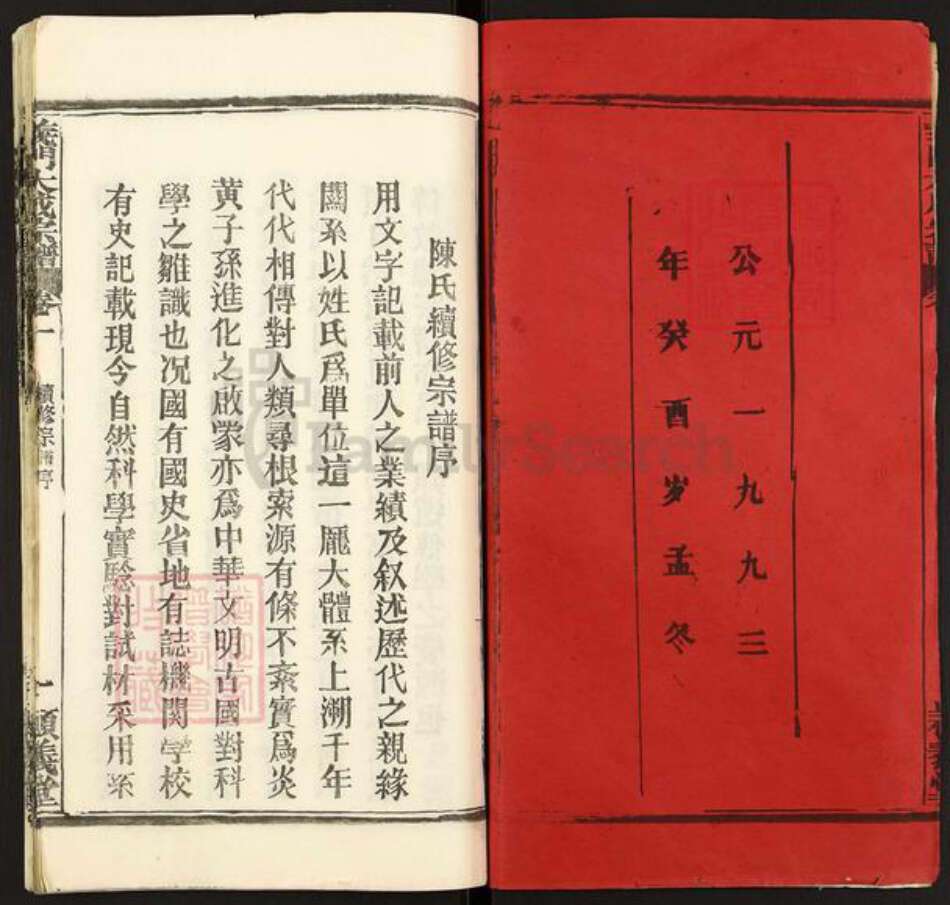 公元一九九三
年癸酉岁孟冬
陳氏續修宗譜序
用文字記載前人之業績及叙述歷代之親緣
關系以姓氏爲單位這一龐大體系上溯千年
代代相傳對人類尋根索源有條不紊實爲炎
黄子孫進化之啟蒙亦爲中華文明古國對科
學之雛識也况國有國史省地有誌機関学校
有史記載現今自然科學實驗對試材采用系
義門大成宗譜 卷一 續修宗譜序 一 義堂
FamilySearch